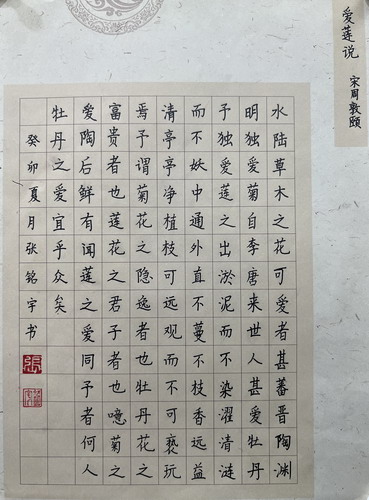 爱莲说
宋周敦颐
水陆草木之花可爱者甚蕃晋陶渊
明独爱菊自李唐来世人甚爱牡丹
予独爱莲之出淤泥而不染濯清涟
而不妖中通外直不蔓不枝香远益
清亭亭净植枝可远观而不可亵玩
焉予谓菊花之隐逸者也牡丹花之
富贵者也莲花之君子者也噫菊之
爱陶后鲜有闻莲之爱同予者何人
牡丹之爱宜乎众矣
癸卯夏月张铭宇书